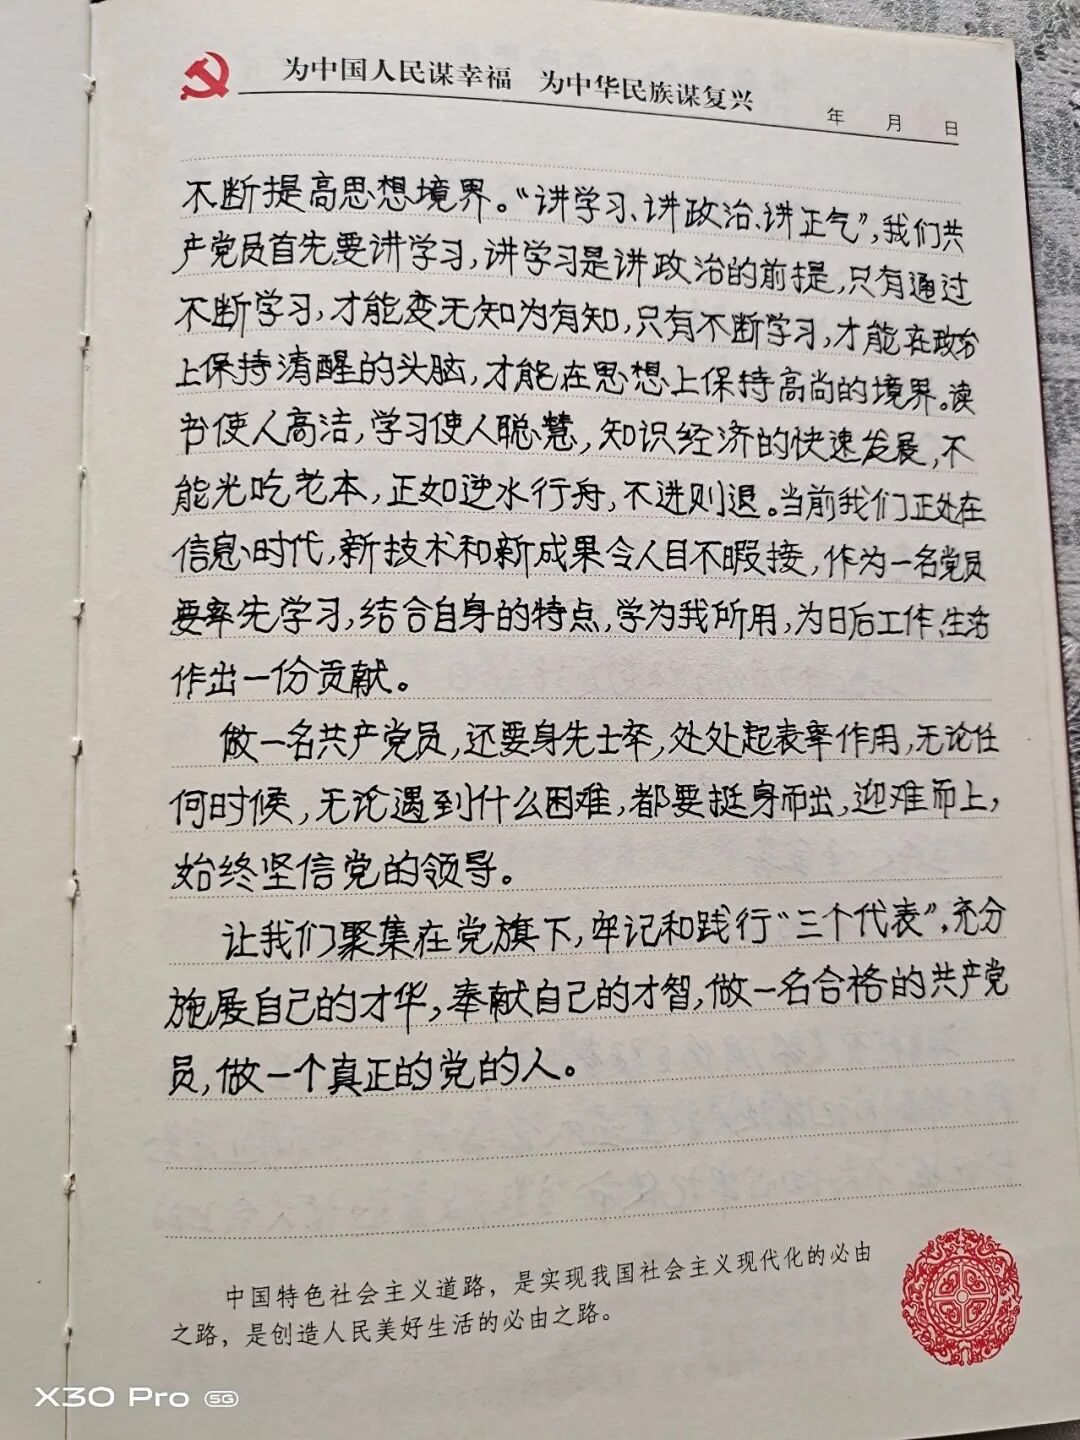 为中国人民谋幸福 为中华民族谋复兴
年 月 日
不断提高思想境界。“讲学习、讲政治、讲正气”,我们共
产党员首先要讲学习,讲学习是讲政治的前提,只有通过
不断学习,才能变无知为有知,只有不断学习,才能在政治
上保持清醒的头脑,才能在思想上保持高尚的境界。读
书使人高洁,学习使人聪慧,知识经济的快速发展,不
能光吃老本,正如逆水行舟,不进则退。当前我们正处在
信息时代,新技术和新成果令人目不暇接,作为一名党员
要率先学习,结合自身的特点,学为我所用,为日后工作、生活
作出一份贡献。
做一名共产党员,还要身先士卒,处处起表率作用,无论任
何时候,无论遇到什么困难,都要挺身而出,迎难而上,
始终坚信党的领导。
让我们聚集在党旗下,牢记和践行“三个代表”,充分
施展自己的才华,奉献自己的才智,做一名合格的共产党
员,做一个真正的党的人。
中国特色社会主义道路,是实现我国社会主义现代化的必由
之路,是创造人民美好生活的必由之路。
X30 Pro 5G